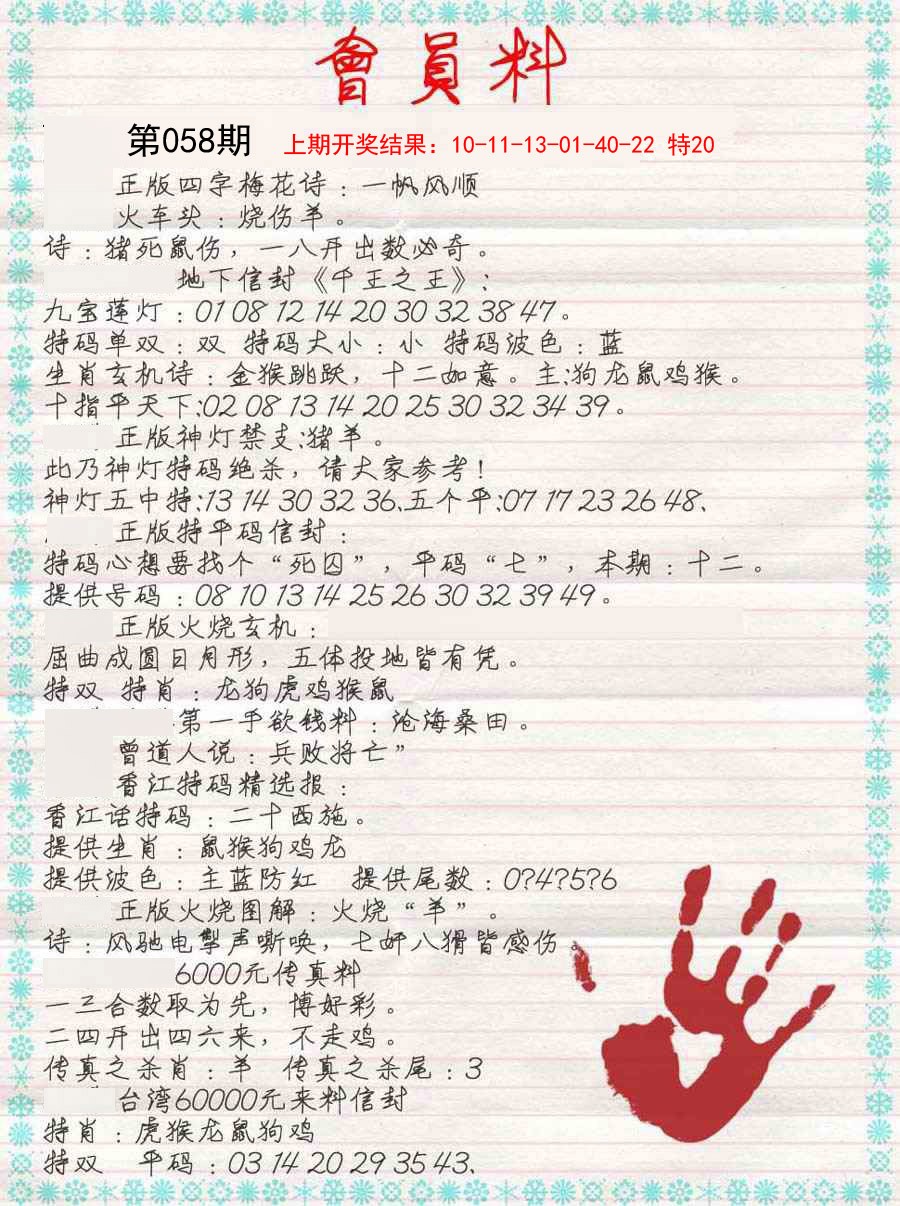 會員料
第058期 上期开奖结果：10-11-13-01-40-22 特20
正版四字梅花诗：一帆风顺
火车头：烧伤羊。
诗：猪死鼠伤，一八开出数必奇。
地下信封《千王之王》：
九宝莲灯：01 08 12 14 20 30 32 38 47。
特码单双：双 特码大小：小 特码波色：蓝
生肖玄机诗：金猴跳跃，十二如意。主:狗龙鼠鸡猴。
十指平天下:02 08 13 14 20 25 30 32 34 39。
正版神灯禁支:猪羊。
此乃神灯特码绝杀，请大家参考！
神灯五中特:13 14 30 32 36、五个平:07 17 23 26 48、
正版特平码信封：
特码心想要找个“死囚”，平码“七”，本期：十二。
提供号码：08 10 13 14 25 26 30 32 39 49。
正版火烧玄机：
屈曲成圆日月形，五体投地皆有凭。
特双 特肖：龙狗虎鸡猴鼠
第一手欲钱料：沧海桑田。
曾道人说：兵败将亡”
香江特码精选报：
香江话特码：二十西施。
提供生肖：鼠猴狗鸡龙
提供波色：主蓝防红 提供尾数：0?4?5?6
正版火烧图解：火烧“羊”。
诗：风驰电掣声嘶唤，七奸八猾皆感伤。
6000元传真料
一三合数取为先，博好彩。
二四开出四六来，不走鸡。
传真之杀肖：羊 传真之杀尾：3
台湾60000元来料信封
特肖：虎猴龙鼠狗鸡
特双 平码：03 14 20 29 35 43、